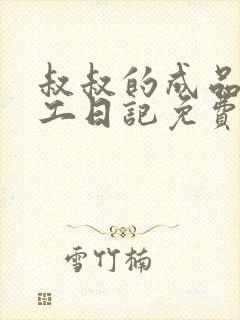 叔叔的成品
工日記免費
雪竹楠